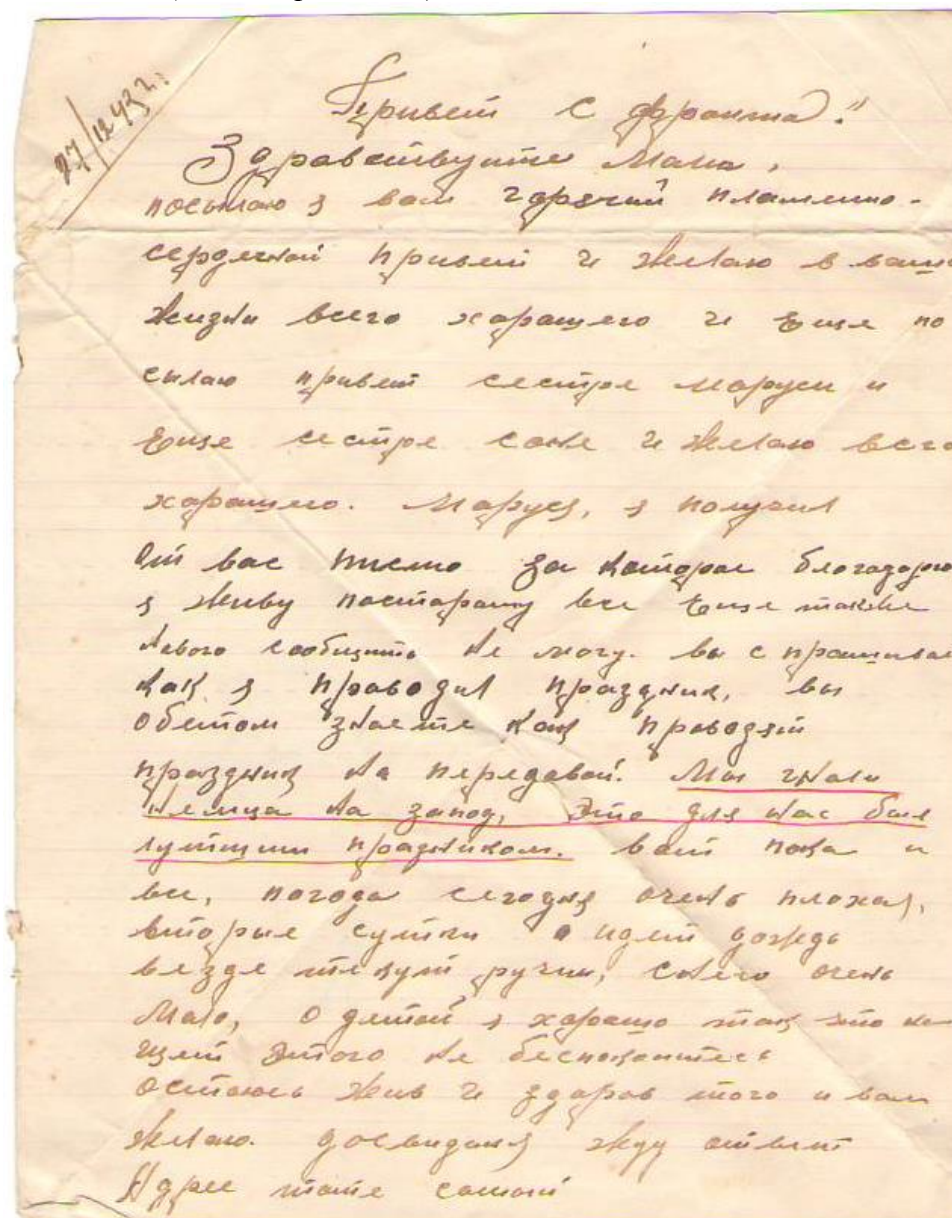 27/12 43 г.
Привет с фронта!"
Здравствуйте Мама,
посылаю я вам горячий пламенно-
сердечной привет и желаю в ваше
жизни всего харашего и Еще по
сылаю привет сестре Маруси и
Еще сестре Соне и желаю всего
харашего. Маруся, я получил
От вас писмо за которае благодарю
я живу постараму все Еще также
нового сообщить не могу. вы спрашивае
как я праводил праздник, вы
обетом знаете как праводят
праздник на передавой. Мы гнали
немца на запод, Это для нас был
лутщим празником. вот пока и
все, погода сегодня очень плохая,
вторые сутки идет дождь
везде текут ручии, снего очень
мало, Одетой я харашо так что на
щет Этого не беспокоитесь
остаюсь жив и здаров того и вам
желаю. досвидания жду ответ
Адрес тоте самой